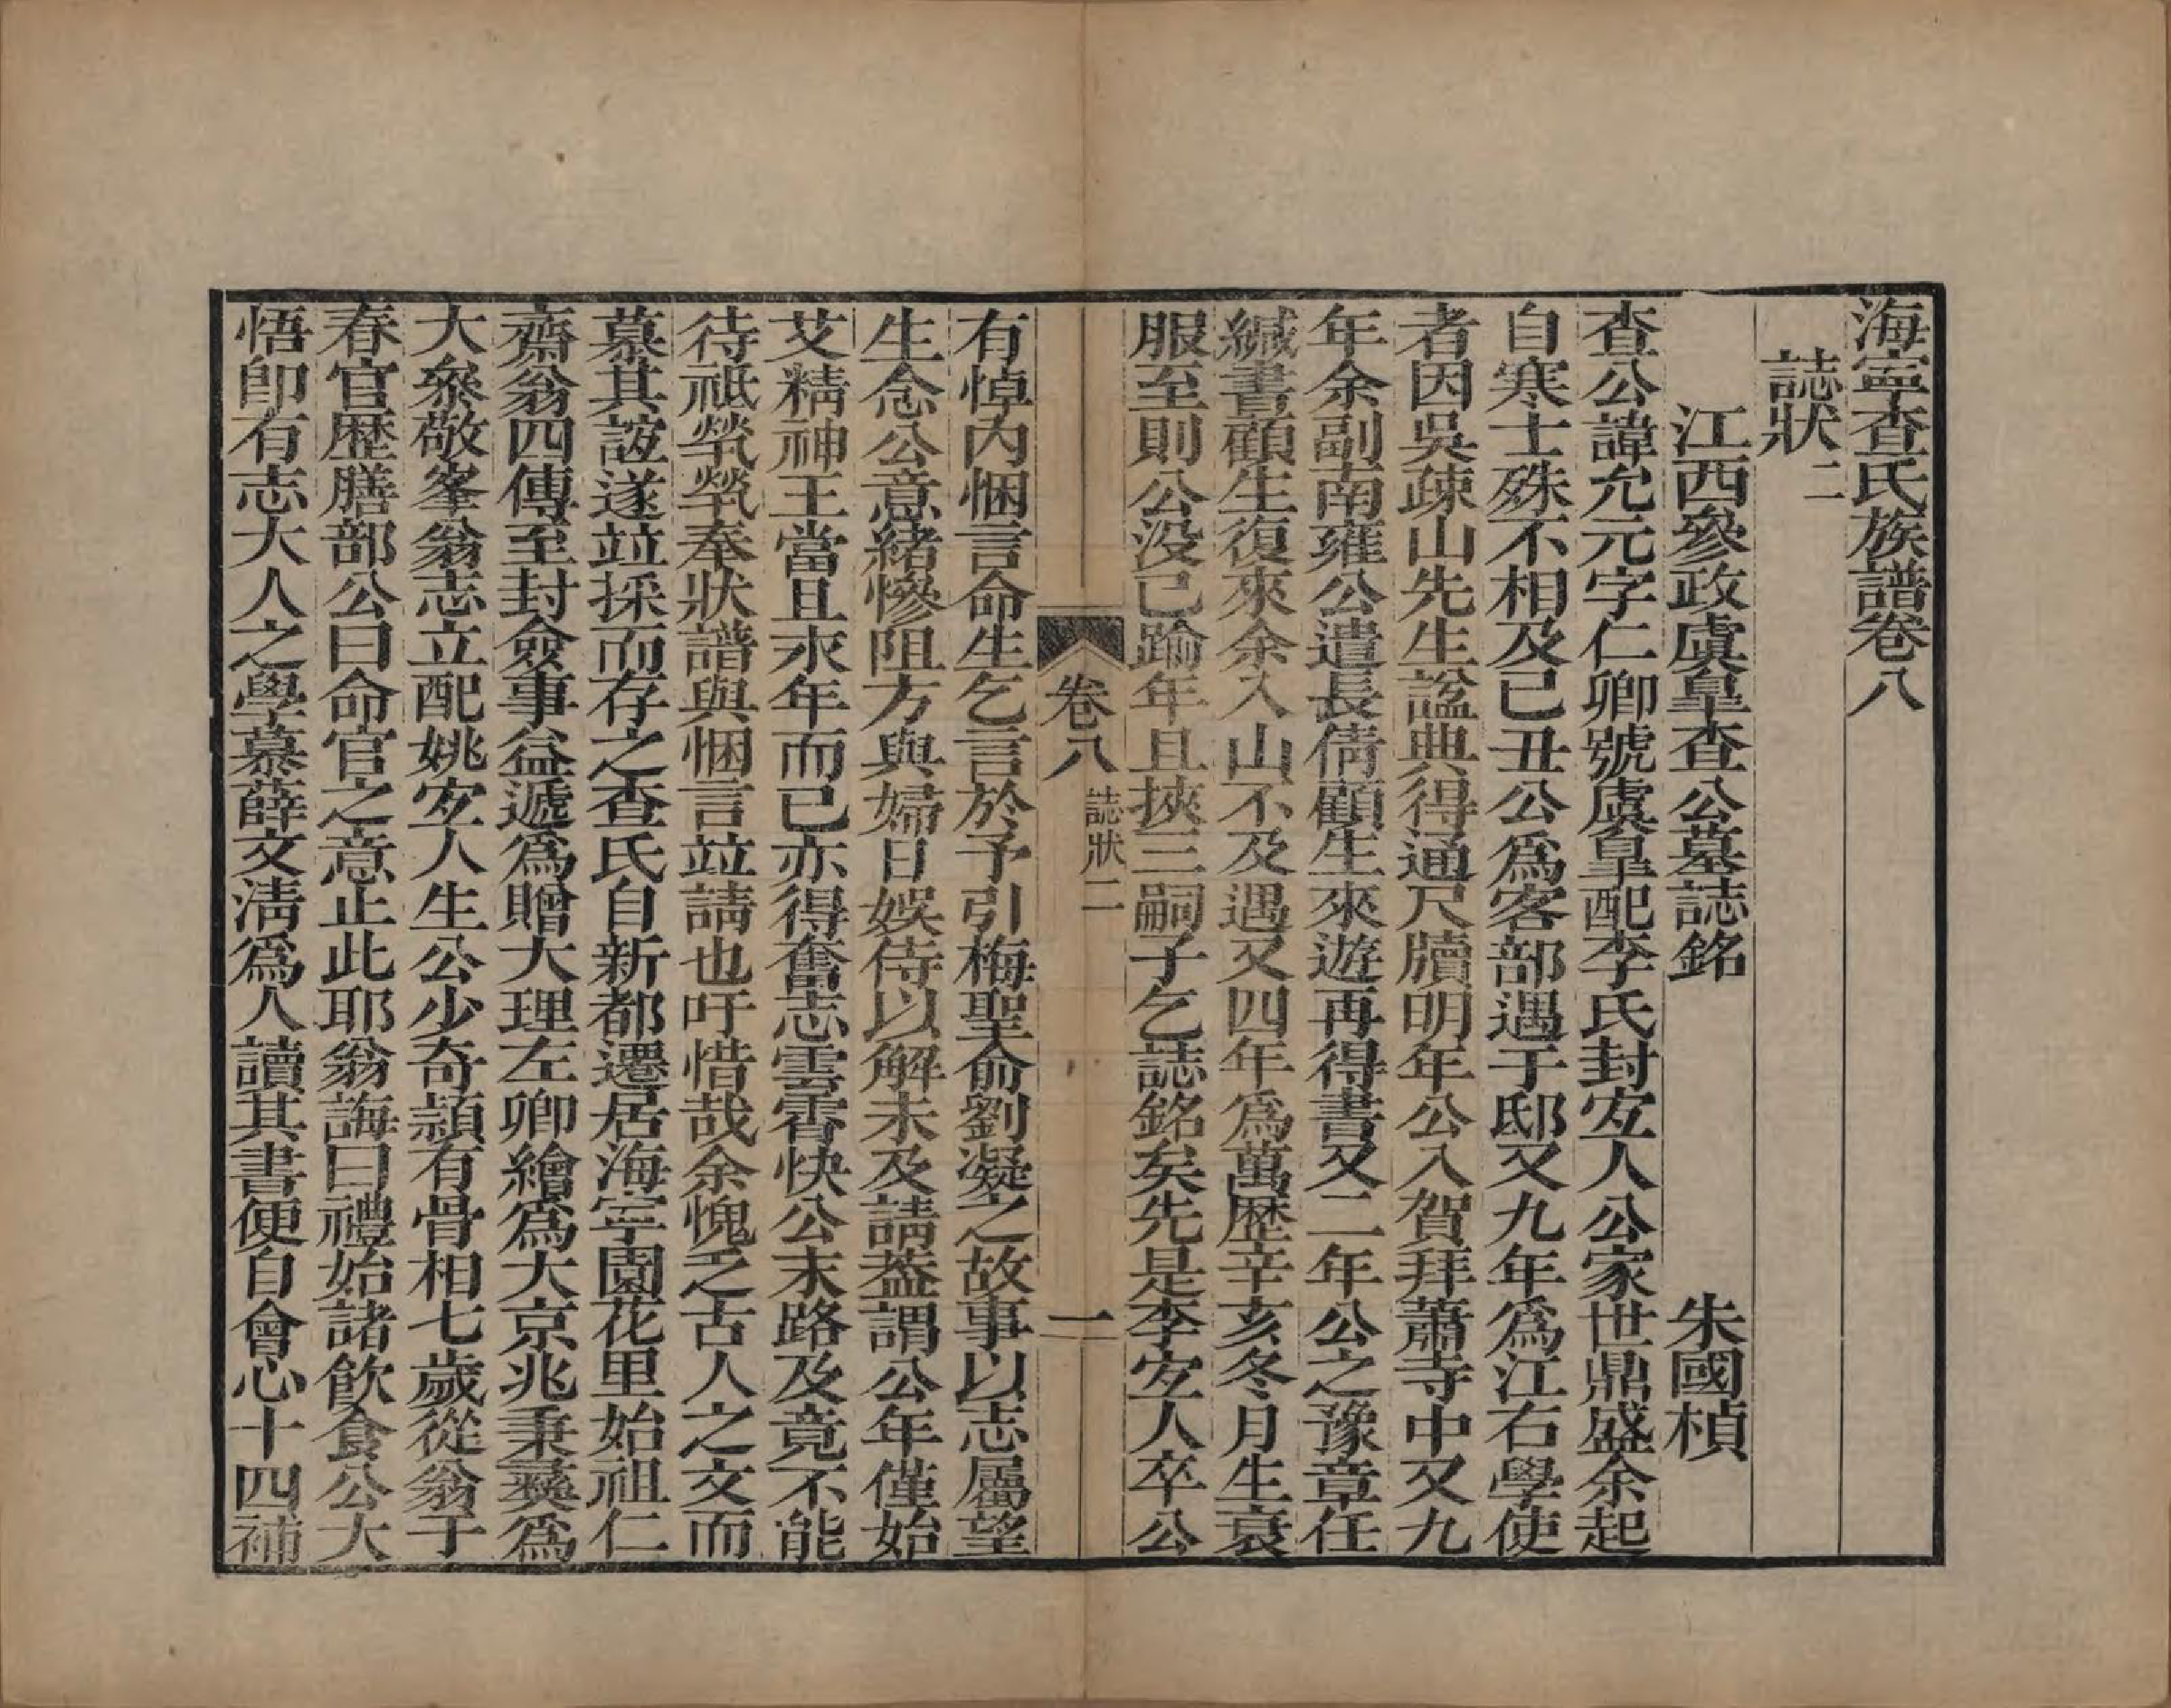 海寧查氏族譜卷八
誌狀二
江西參政虞皐查公墓誌銘　朱國楨
查公諱允元字仁卿號虞皐配李氏封宜人公家世鼎盛余起
自寒士殊不相及己丑公爲客部遇于邸又九年爲江右學使
者因吳疎山先生諡典得通尺牘明年公入賀拜蕭寺中又九
年余副南雍公遣長倩顧生來遊再得書又二年公之豫章任
緘書顧生復來余入山不及遇又四年爲萬歷辛亥冬月生衰
服至則公没已踰年且挾三嗣子乞誌銘矣先是李宜人卒公
卷八　誌狀二　一
有悼内悃言命生乞言於予引梅聖俞劉凝之故事以志屬望
生念公意緒慘阻方與婦日娛侍以解未及請葢謂公年僅始
艾精神王當且永年而已亦得奮志雲霄快公末路及竟不能
待祗煢煢奉狀譜與悃言竝請也吁惜哉余愧乏古人之文而
慕其誼遂竝採而存之查氏自新都遷居海寧園花里始祖仁
齋翁四傳至封僉事益遞爲贈大理左卿繪爲大京兆秉彝爲
大叅敬峯翁志立配姚宜人生公少奇穎有骨相七歲從翁于
春官歴膳部公曰命官之意止此耶翁誨曰禮始諸飲食公大
悟卽有志大人之學慕薛文淸爲人讀其書便自會心十四補